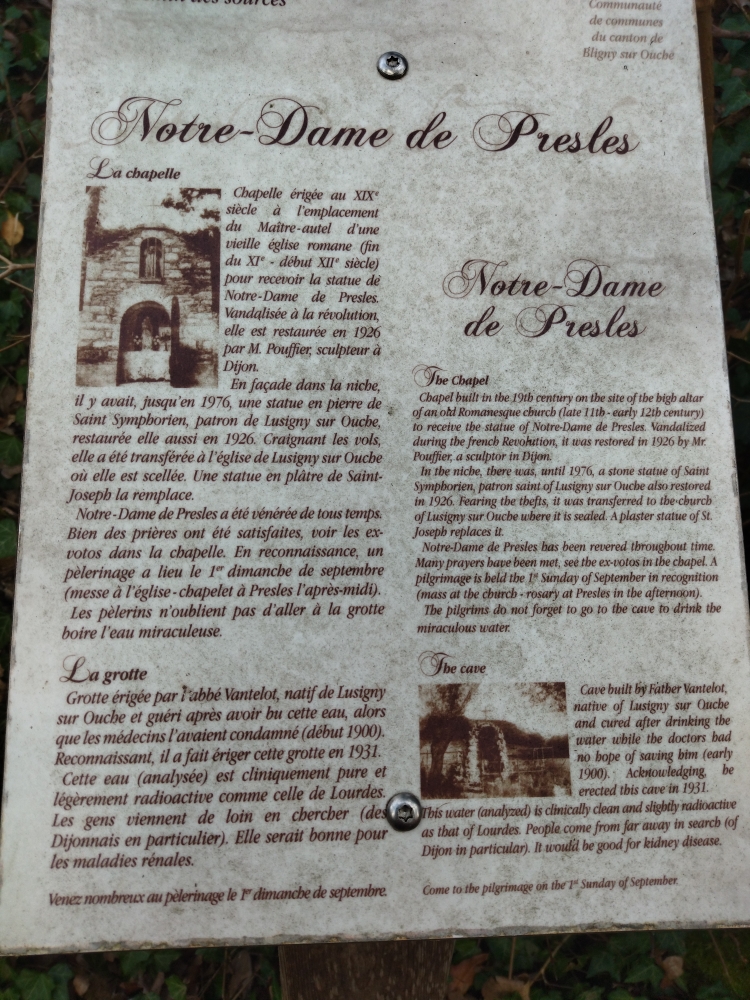 des sources
Communauté
de communes
du canton de
Bligny sur Ouche
Notre-Dame de Presles
La chapelle
Chapelle érigée au XIXe
siècle à l'emplacement
du Maître-autel d'une
vieille église romane (fin
du XIe - début XIIe siècle)
pour recevoir la statue de
Notre-Dame de Presles.
Vandalisée à la révolution,
elle est restaurée en 1926
par M. Pouffier, sculpteur à
Dijon.
En façade dans la niche,
il y avait, jusqu'en 1976, une statue en pierre de
Saint Symphorien, patron de Lusigny sur Ouche,
restaurée elle aussi en 1926. Craignant les vols,
elle a été transférée à l'église de Lusigny sur Ouche
où elle est scellée. Une statue en plâtre de Saint-
Joseph la remplace.
Notre-Dame de Presles a été vénérée de tous temps.
Bien des prières ont été satisfaites, voir les ex-
votos dans la chapelle. En reconnaissance, un
pèlerinage a lieu le 1er dimanche de septembre
(messe à l'église-chapelet à Presles l'après-midi).
Les pèlerins n'oublient pas d'aller à la grotte
boire l'eau miraculeuse.
La grotte
Grotte érigée par l'abbé Vantelot, natif de Lusigny
sur Ouche et guéri après avoir bu cette eau, alors
que les médecins l'avaient condamné (début 1900).
Reconnaissant, il a fait ériger cette grotte en 1931.
Cette eau (analysée) est cliniquement pure et
légèrement radioactive comme celle de Lourdes.
Les gens viennent de loin en chercher (des
Dijonnais en particulier). Elle serait bonne pour
les maladies rénales.
Venez nombreux au pèlerinage le 1er dimanche de septembre.
Notre-Dame
de Presles
The Chapel
Chapel built in the 19th century on the site of the high altar
of an old Romanesque church (late 11th - early 12th century)
to receive the statue of Notre-Dame de Presles. Vandalized
during the french Revolution, it was restored in 1926 by Mr.
Pouffier, a sculptor in Dijon.
In the niche, there was, until 1976, a stone statue of Saint
Symphorien, patron saint of Lusigny sur Ouche also restored
in 1926. Fearing the thefts, it was transferred to the church
of Lusigny sur Ouche where it is sealed. A plaster statue of St.
Joseph replaces it.
Notre-Dame de Presles has been revered throughout time.
Many prayers have been met, see the ex-votos in the chapel. A
pilgrimage is held the 1st Sunday of September in recognition
(mass at the church - rosary at Presles in the afternoon).
The pilgrims do not forget to go to the cave to drink the
miraculous water.
The cave
Cave built by Father Vantelot,
native of Lusigny sur Ouche
and cured after drinking the
water while the doctors had
no hope of saving him (early
1900). Acknowledging, he
erected this cave in 1931.
This water (analyzed) is clinically clean and slightly radioactive
as that of Lourdes. People come from far away in search (of
Dijon in particular). It would be good for kidney disease.
Come to the pilgrimage on the 1st Sunday of September.